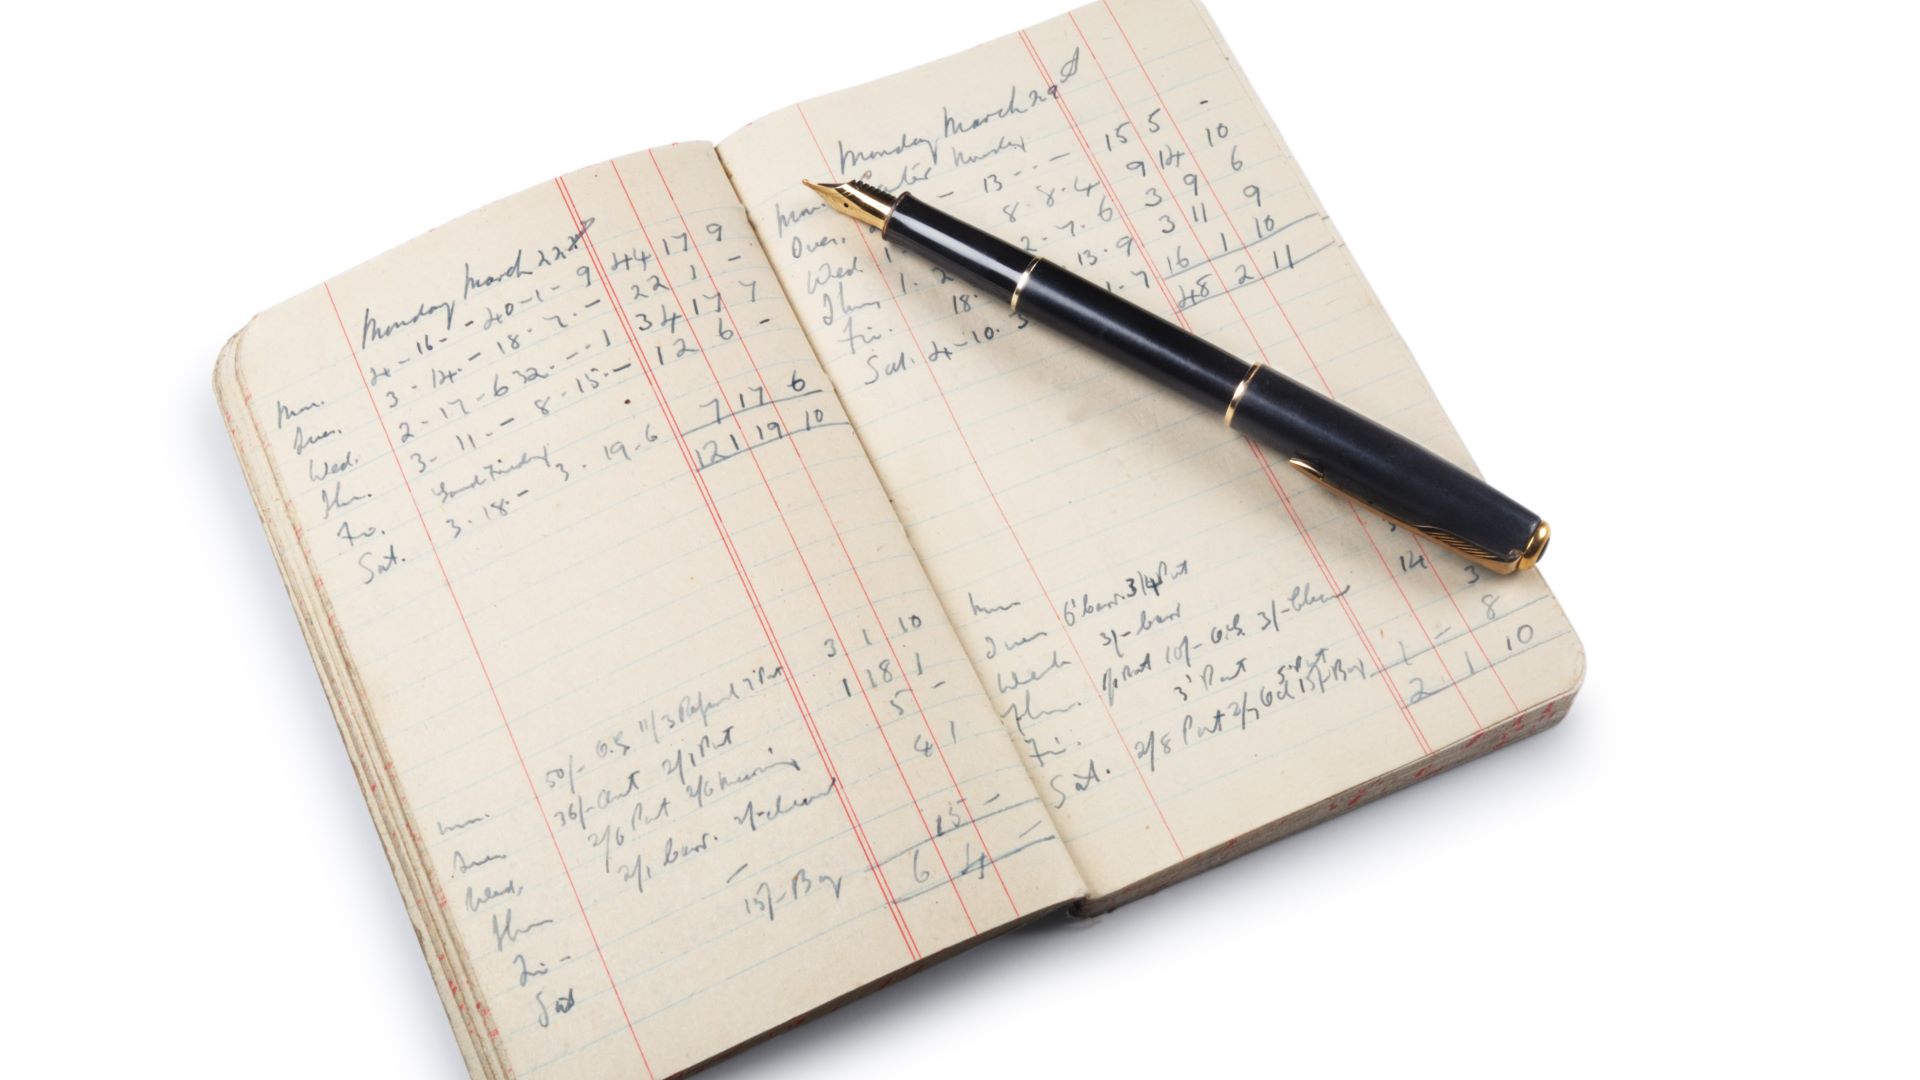 Monday March 22nd
Mon. 4-16-- 40-1-9 44 17 9
Tues. 3-14-- 18-7-- 22 1 -
Wed. 2-17-6 32---1 34 17 7
Thu. 3-11-- 8-15-- 12 6 -
Fri. Good Friday
Sat. 3-18-- 3-19-6 7 17 6
121 19 10
Mon. 50/- 11/3 Refund 3 1 10
Tues 36/- 2/1 Post 1 18 1
Wed. 2/6 Post 2/6 5 -
Thur 2/1 barr. 2/- 4 1
Fri - -
Sat 15/- Boy 15 -
6 4 -
Monday March 29th
Mon. Easter Monday
Tues. - 13 - - - 15 5 -
Wed. 1 8-8-4 9 14 10
Thur 1. 2 2.7.6 3 9 6
Fri. 18. 13.9 3 11 9
Sat. 4-10-3 1-7 16 1 10
48 2 11
Mon
Tues 6' barr. 3/4 Post 14
Wed 3/- barr 3
Thur. Post 10/- 3/-
Fri. 3' Post 5' Post 8
Sat. 2/8 Post 2/7 15/- Boy 1 -
2 1 10